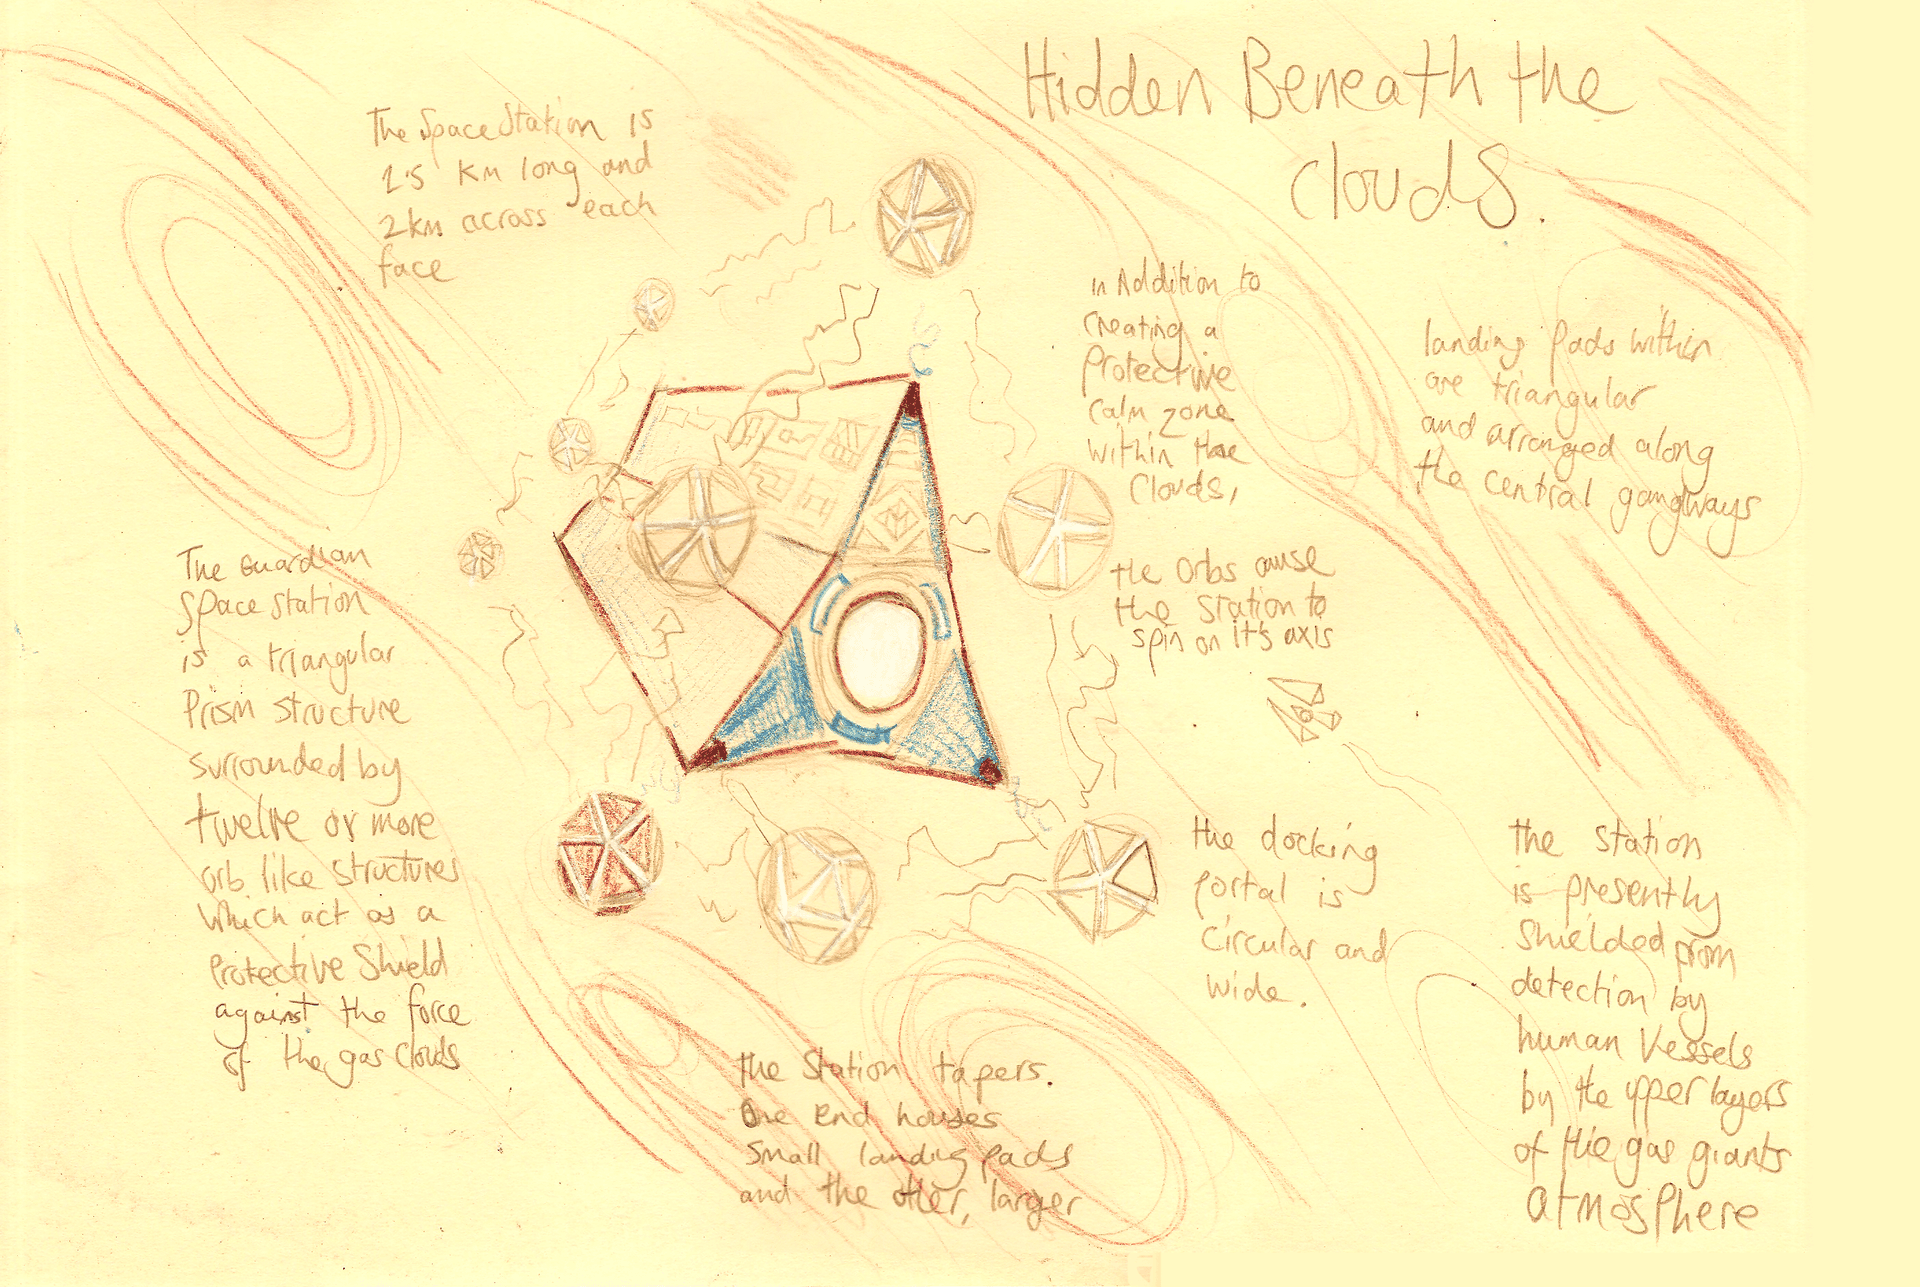 Hidden Beneath the
Clouds.
The Space Station is
2.5 Km long and
2km across each
face
in Addition to
creating a
Protective
calm zone
within the
Clouds,
the orbs cause
the Station to
spin on it's axis
landing pads within
are triangular
and arranged along
the central gangways
The Guardian
Space station
is a triangular
Prism structure
surrounded by
twelve or more
orb like structures
which act as a
Protective Shield
against the force
of the gas clouds
the docking
portal is
circular and
wide.
the station
is presently
Shielded from
detection by
human Vessels
by the upper layers
of the gas giants
atmosphere
the Station tapers.
One end houses
Small landing pads
and the other, larger